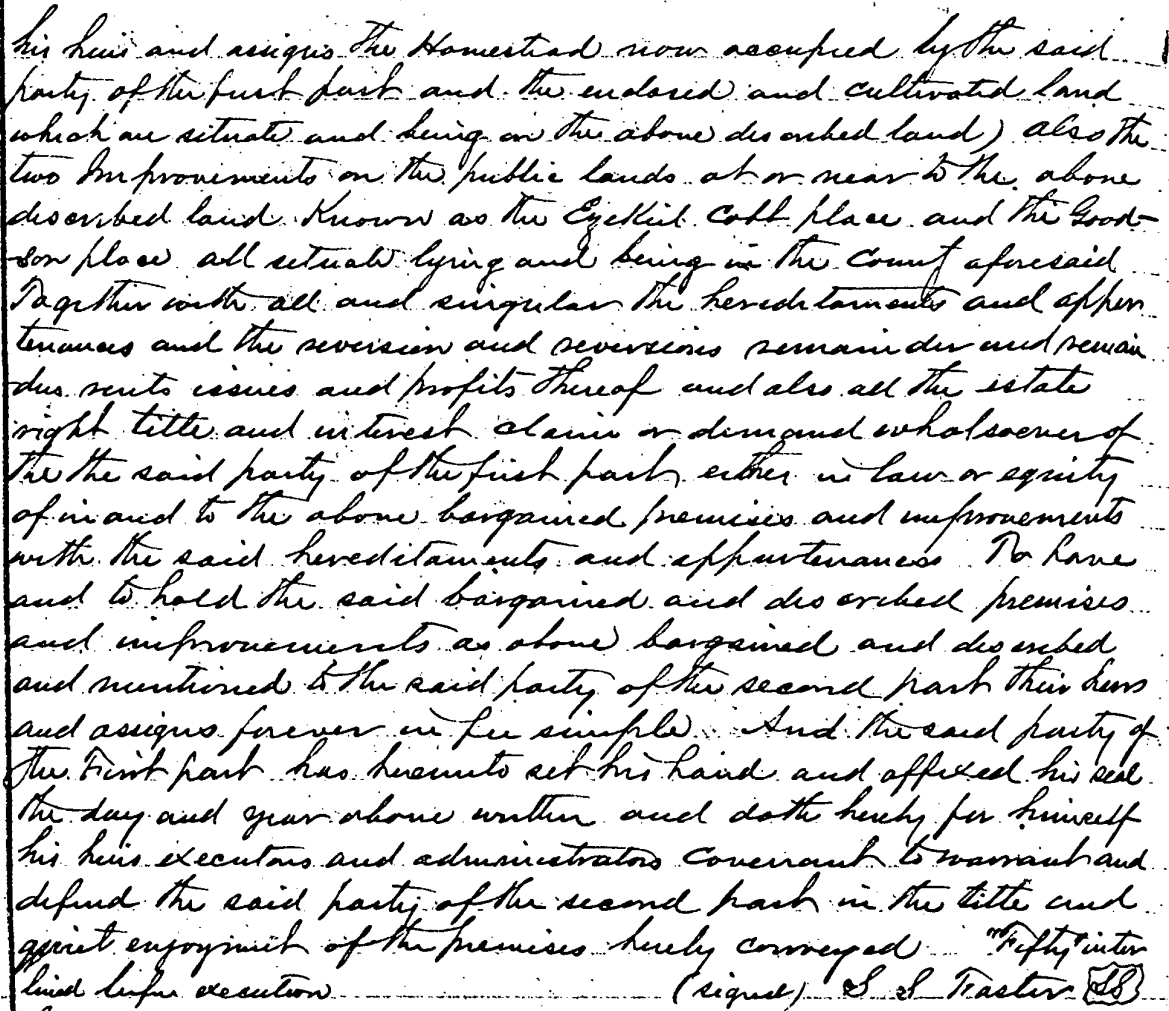 his heirs and assigns the Homestead now occupied by the said
party of the first part and the enclosed and cultivated land
which are situate and being on the above described land) also the
two Improvements on the public lands at or near to the above
described land Known as the Ezekiel Cobb place and the Good-
-son place all situate lying and being in the County aforesaid
Together with all and singular the hereditaments and appur
tenances and the reversion and reversions remainder and remain
ders rents issues and profits thereof and also all the estate
right title and interest claim or demand whatsoever of
the the said party of the first part either in law or equity
of in and to the above bargained premises and improvements
with the said hereditaments and appurtenances To have
and to hold the said bargained and described premises
and improvements as above bargained and described
and mentioned to the said party of the second part their heirs
and assigns forever in fee simple And the said party of
the First part has hereunto set his hand and affixed his seal
the day and year above written and doth hereby for himself
his heirs executors and administrators Covenant to warrant and
defend the said party of the second part in the title and
quiet enjoyment of the premises hereby conveyed "Fifty" inter
lined before execution (signed) S S